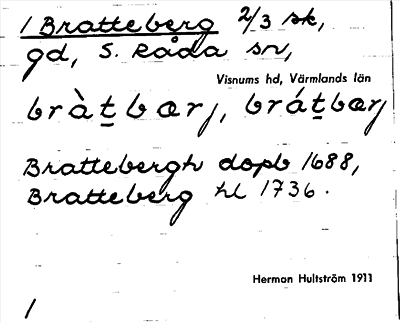 1 Bratteberg 2/3 sk,
gd, S. Råda sn,
Visnums hd, Värmlands län
bràt̲bærj, brát̲bærj
Brattebergh dopb 1688,
Bratteberg hl 1736.
Herman Hultström 1911
1